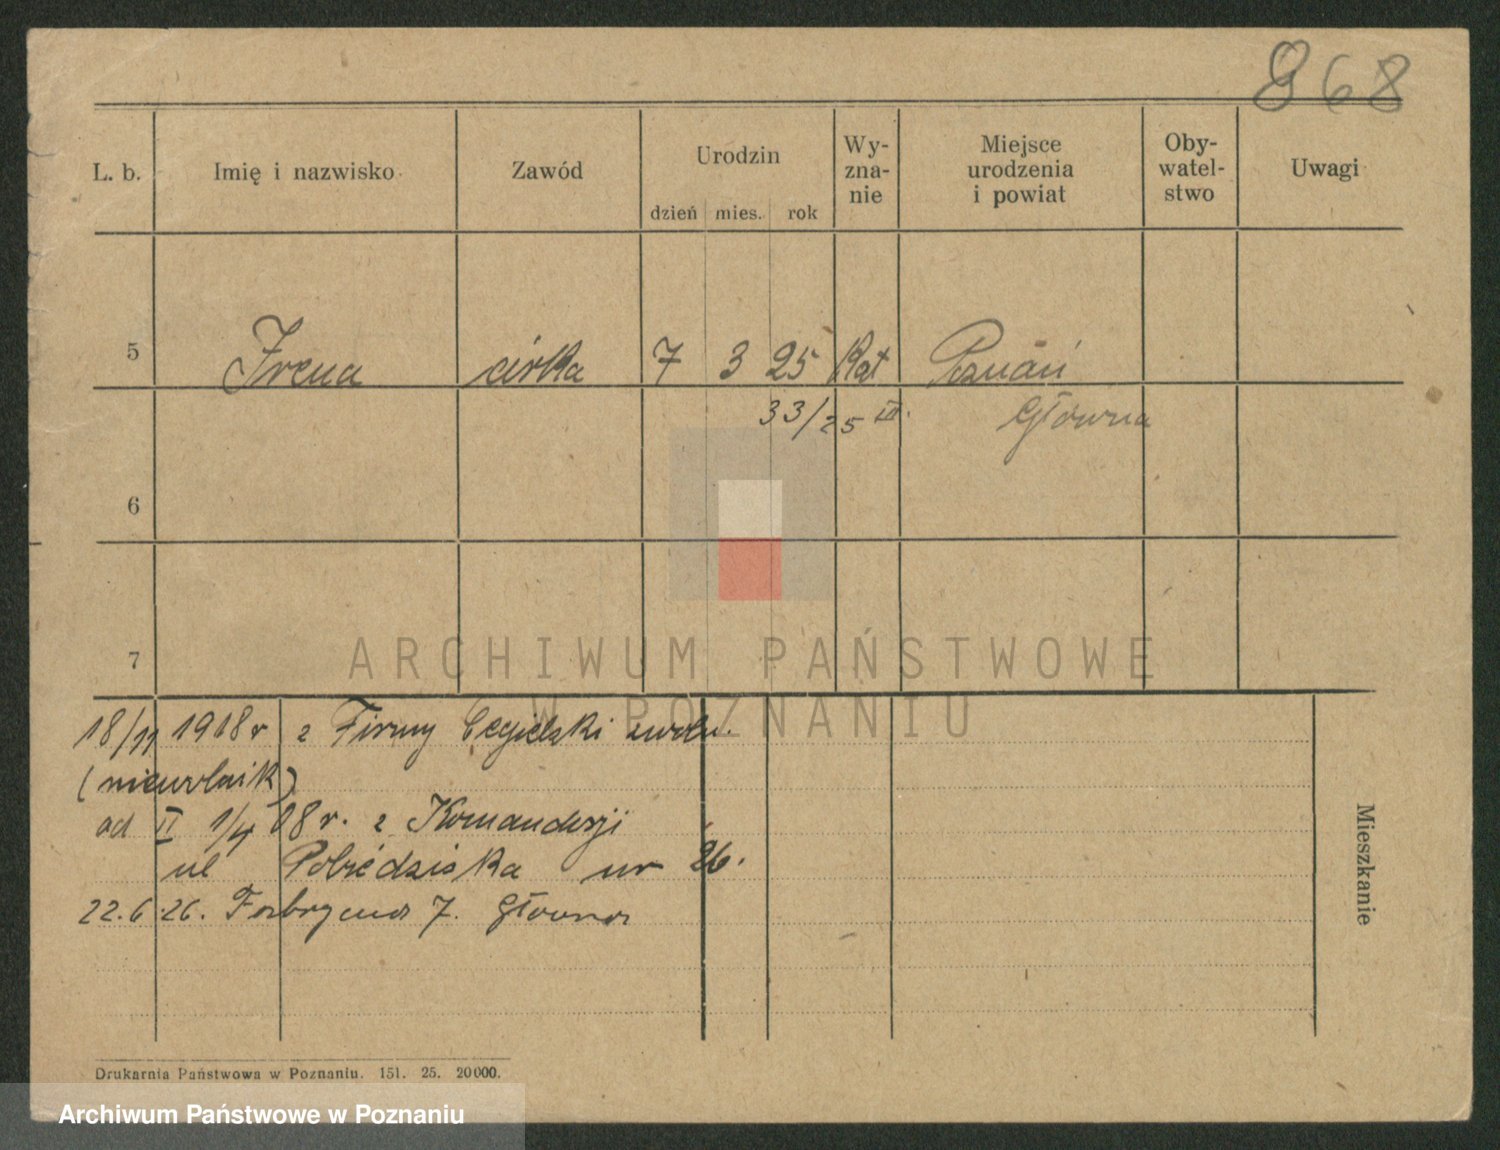 868
L. b. Imię i nazwisko Zawód Urodzin dzień mies. rok Wy- zna- nie Miejsce urodzenia i powiat Oby- watel- stwo Uwagi
5 Irena córka 7 3 25 Kat Poznań
33/25 III. Główna
6
7
18/11 1918 r z Firmy Cegielski zwoln.
(niewolnik)
od II 1/4 08 r. z Komanderji
ul Pobiedziska nr 26.
22.6.26. Fabryczna 7. Główna
Mieszkanie
Drukarnia Państwowa w Poznaniu. 151. 25. 20000.
ARCHIWUM PAŃSTWOWE
W POZNANIU
Archiwum Państwowe w Poznaniu